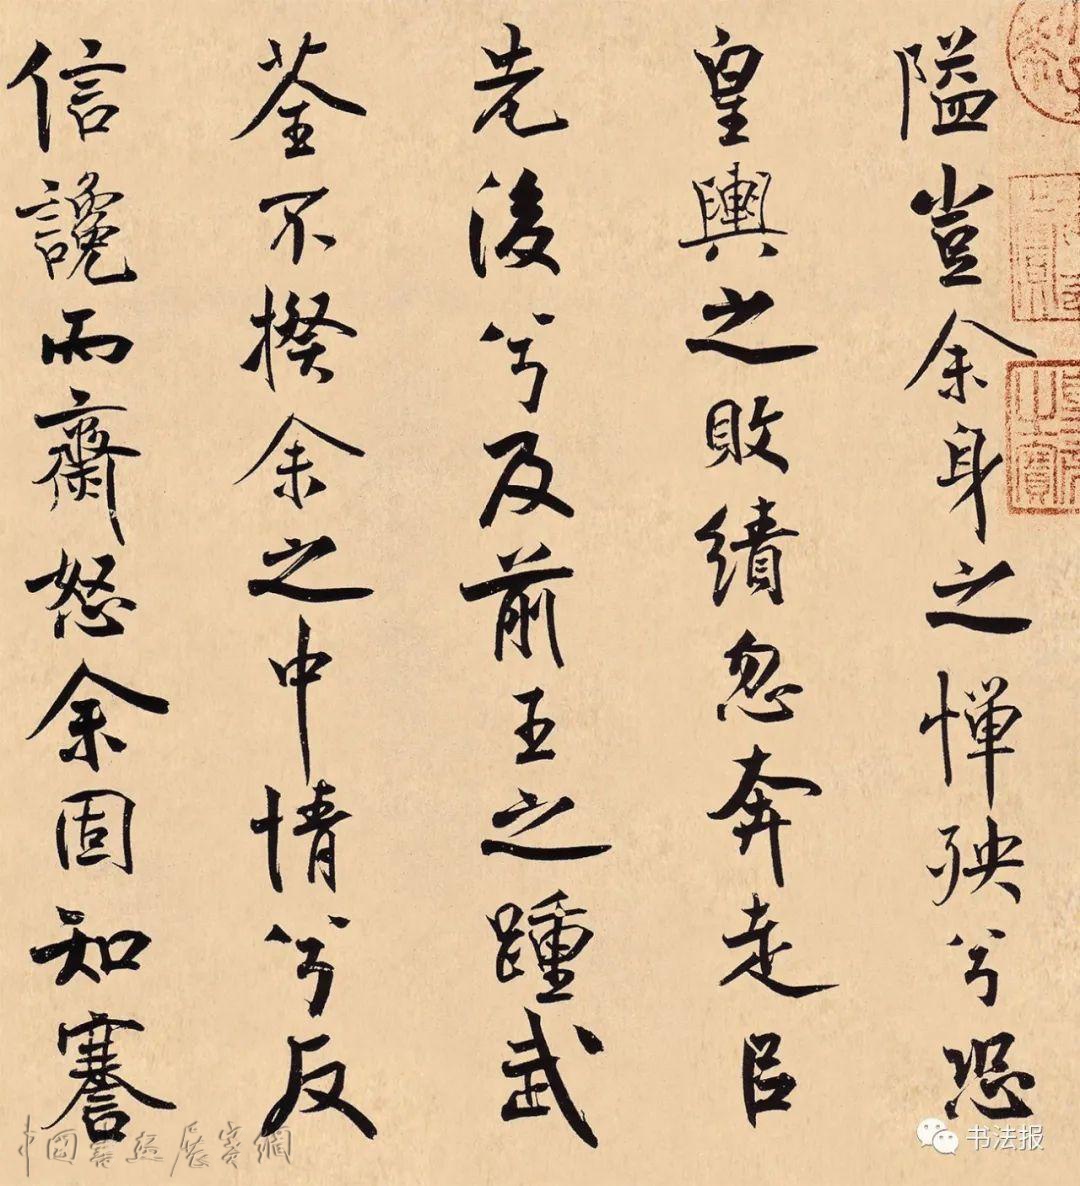 隘豈余身之憚殃兮恐
皇輿之敗績忽奔走㠯
先後兮及前王之踵武
荃不揆余之中情兮反
信讒而齌怒余固知謇
中國書法展賽網
书法报